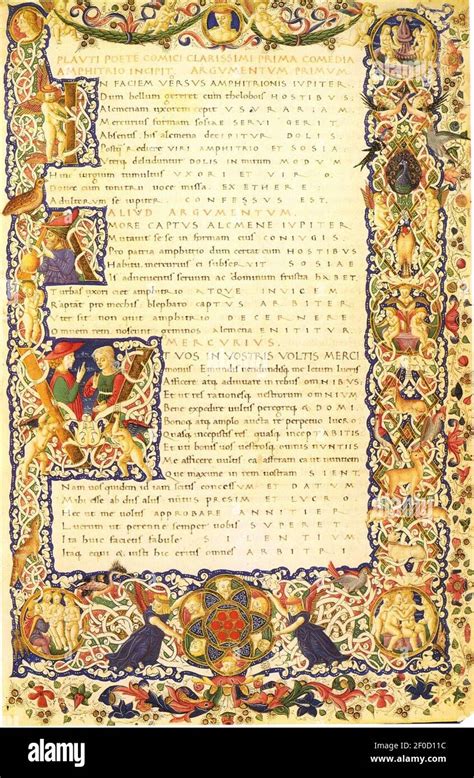 PLAVTI POETE COMICI CLARISSIMI PRIMA COMEDIA
AMPHITRIO INCIPIT. ARGVMENTVM PRIMVM.
IN FACIEM VERSVS AMPHITRIONIS IVPITER
Dum bellum gereret cum thelobois HOSTIBVS
Alcmenam uxorem cepit VSVRARIAM
Mercurius formam sosiae SERVI GERIT
Absentis his alcmena decipitur DOLIS
Postq rediere VIRI AMPHITRIO ET SOSIA
deluduntur DOLIS in mirum MODVM
Hinc iurgium tumultus VXORI ET VIRO
Donec cum tonitru uoce missa EX ETHERE
Adulterum se iupiter CONFESSVS EST
ALIVD ARGVMENTVM
AMORE CAPTVS ALCMENE IVPITER
Mutauit sese in formam eius CONIVGIS
Pro patria amphitrio dum certat cum HOSTIBVS
Habitu mercurius ei subseruit SOSIAE
Is aduenientis seruum ac dominum frustra HABET
Turbas uxori ciet amphitrio ATQVE INVICEM
Raptat pro mechis blepharo CAPTVS ARBITER
Vter sit non quit amphitrio DECERNERE
Omnem rem noscunt geminos alcmena ENITITVR
MERCVRIVS
VT VOS IN VOSTRIS VOLTIS MERCI
moniis Emundis uendundisq me laetum lucris
Afficere atq adiuuare in rebus OMNIBVS
Et ut res rationesq uostrorum OMNIVM
Bene expedire uultis peregreq & DOMI
Bonoq atq amplo auctare perpetuo lucro
Quasq incepistis res quasq INCEPTABITIS
Et uti bonis uos uestrosq omnis NVNTIIS
Me afficere uultis ea afferam ea uti nuntiem
Que maxime in rem uostram SIENT
Nam uos quidem id iam scitis concessum ET DATVM
Mihi esse ab dis aliis nuntiis presim ET LVCRO
Hec ut me uoltis APPROBARE ANNITIER
Lucrum ut perenne semper uobis SVPPETAT
Ita huic facietis fabulae SILENTIVM
Itaq equi & iusti hic eritis omnes ARBITRI
alamy
Image ID: 2F0D11C
www.alamy.com